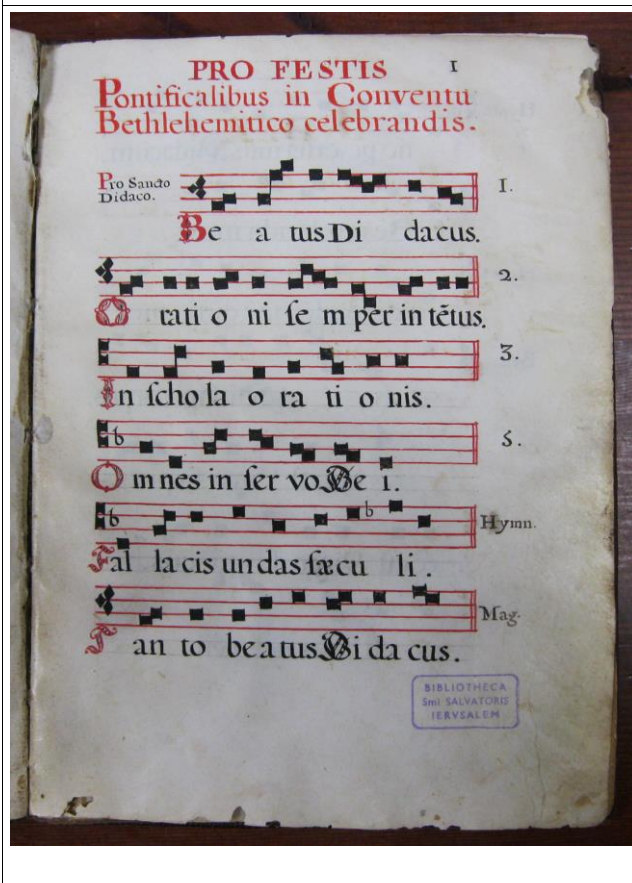 PRO FESTIS 1
Pontificalibus in Conventu
Bethlehemitico celebrandis.
Pro Sancto
Didaco.
1.
Be a tus Di dacus.
2.
O rati o ni se m per in tẽtus.
3.
In scho la o ra ti o nis.
5.
O m nes in ser vo De i.
Hymn.
Fal la cis un das fæcu li .
Mag.
an to be a tus Di da cus.
BIBLIOTHECA
Smi SALVATORIS
IERVSALEM